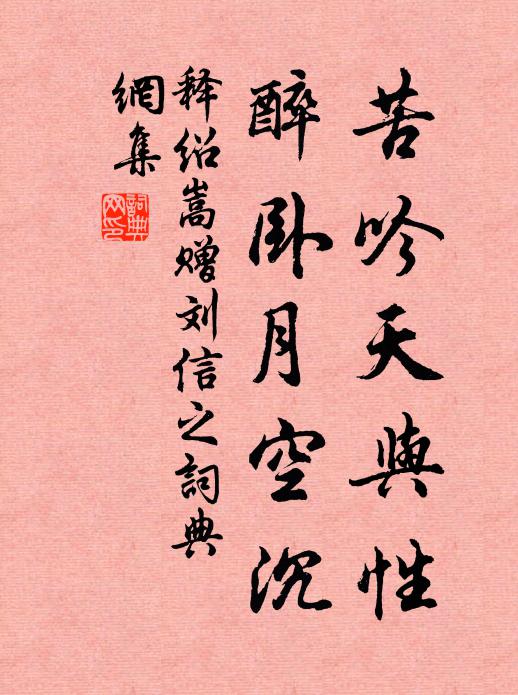 苦吟天與性
醉卧月空沉
释绍嵩赠刘信之詞典
網集
詞典网印